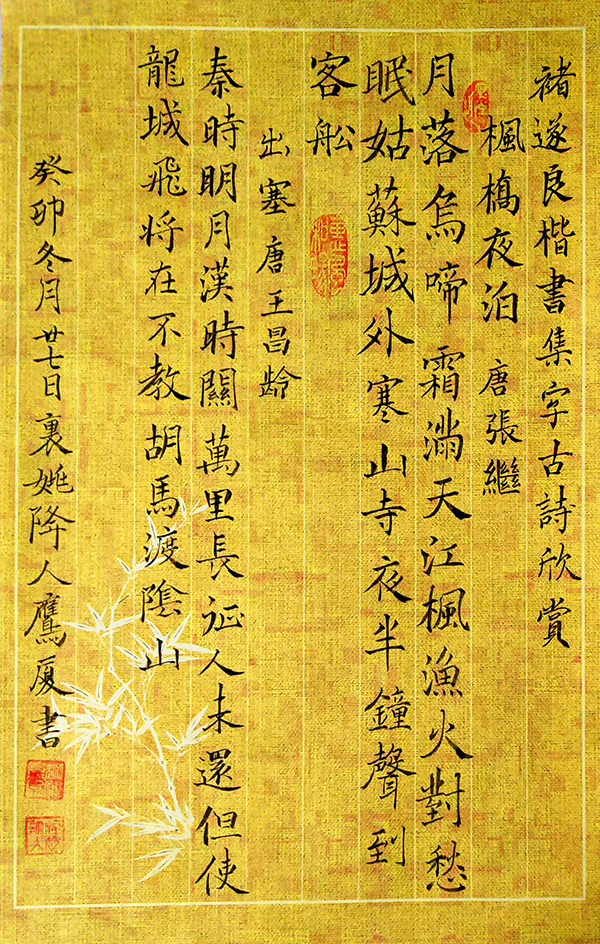 褚遂良楷書集字古詩欣賞
楓橋夜泊　唐張繼
月落烏啼霜滿天江楓漁火對愁
眠姑蘇城外寒山寺夜半鐘聲到
客船
出塞唐王昌齡
秦時明月漢時關萬里長征人未還但使
龍城飛将在不教胡馬渡陰山
癸卯冬月廿七日裏姚降人鷹厦書